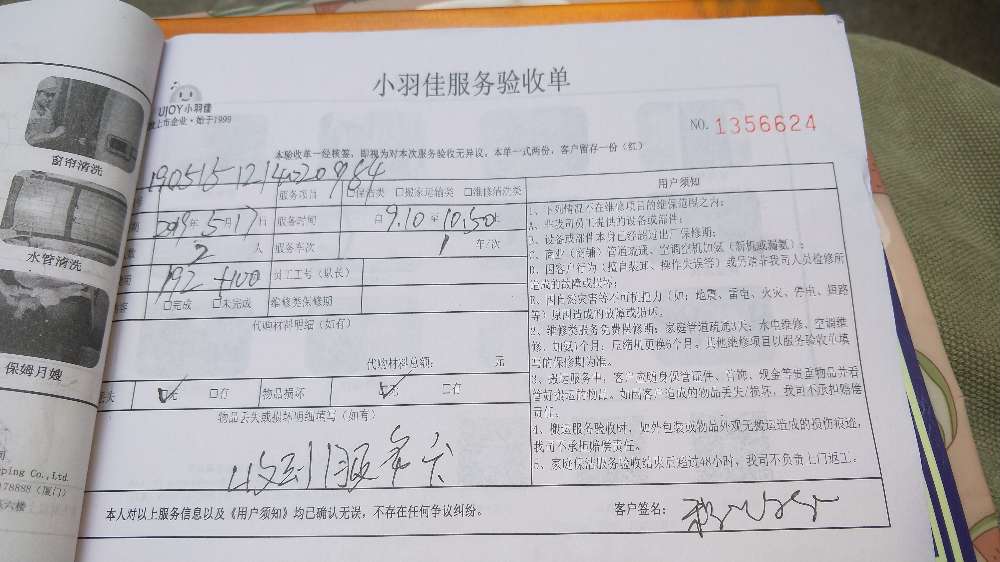 小羽佳服务验收单
UJOY小羽佳
上市企业·始于1999
NO. 1356624
本验收单一经核签，即视为对本次服务验收无异议。本单一式两份，客户留存一份（红）
服务项目 □保洁类 □搬家运输类 □维修清洗类
2019年5月17日 服务时间 自9.10至10.50止
2 人 服务车次 1 车/次
192 +100 员工工号（队长）
□完成 □未完成 维修类保修期
代购材料明细（如有）
代购材料总额： 元
丢失 □无 □有 物品损坏 □无 □有
物品丢失或损坏明细填写（如有）
收到1服务卡
本人对以上服务信息以及《用户须知》均已确认无误，不存在任何争议纠纷。
客户签名：
用户须知
1、下列情况不在维修项目的维保范围之内：
A、非我司员工提供的设备或部件；
B、设备或部件本身已经超过出厂保修期；
C、商业（商铺）管道疏通、空调空机加氨（新机或漏氨）；
D、因客户行为（擅自装卸、操作失误等）或另请非我司人员检修所
造成的故障或损坏；
E、因自然灾害等不可抗拒力（如：地震、雷电、火灾、停电、短路
等）原因造成的故障或损坏。
2、维修类服务免费保修期：家庭管道疏通3天；水电维修、空调维
修、加氨1个月；压缩机更换6个月。其他维修项目以服务验收单填
写的保修期为准。
3、搬运服务中，客户应随身保管证件、首饰、现金等贵重物品并看
管好搬运的物品。如因客户造成的物品丢失/损坏，我司不承担赔偿
责任。
4、搬运服务验收时，如外包装或物品外观无搬运造成的损伤痕迹，
我司不承担赔偿责任。
5、家庭保洁服务验收结束后超过48小时，我司不负责上门返工。
窗帘清洗
水管清洗
保姆月嫂
ping Co.,Ltd
178888（厦门）
六楼